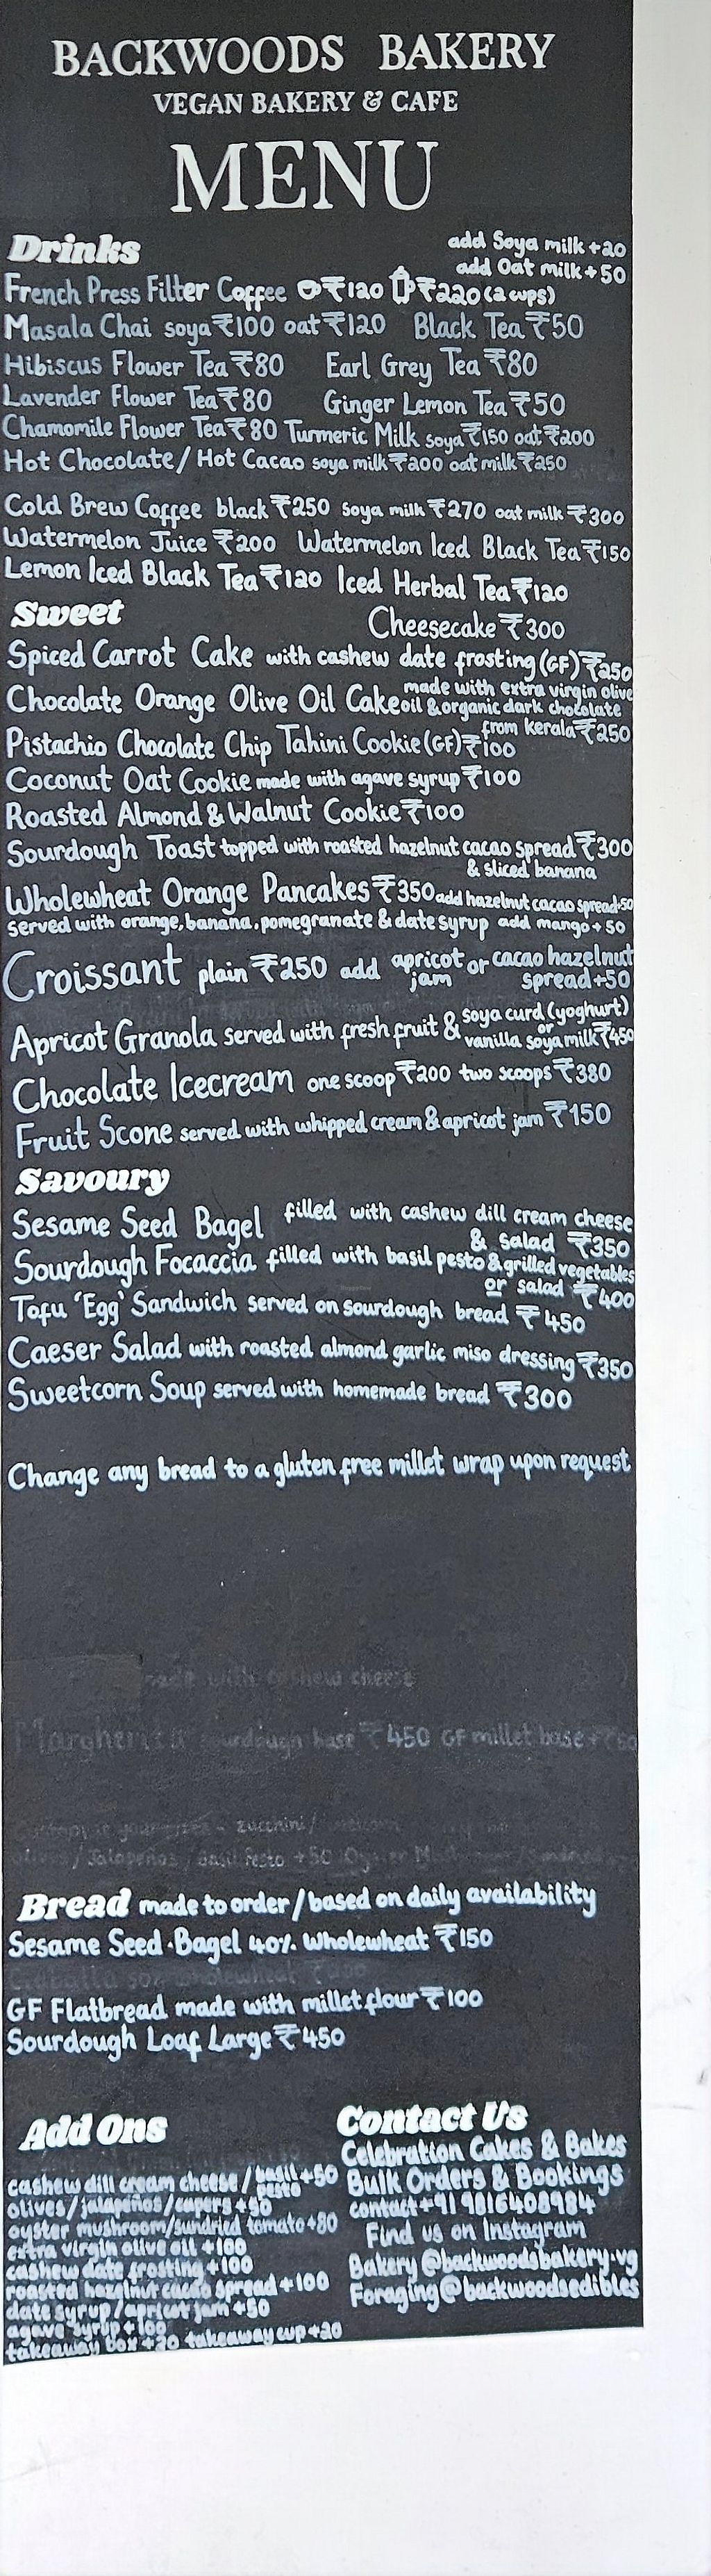 BACKWOODS BAKERY
VEGAN BAKERY & CAFE
MENU
Drinks
add Soya milk +20
add Oat milk +50
French Press Filter Coffee ₹120 ₹220 (2 cups)
Masala Chai soya ₹100 oat ₹120 Black Tea ₹50
Hibiscus Flower Tea ₹80 Earl Grey Tea ₹80
Lavender Flower Tea ₹80 Ginger Lemon Tea ₹50
Chamomile Flower Tea ₹80 Turmeric Milk soya ₹150 oat ₹200
Hot Chocolate / Hot Cacao soya milk ₹200 oat milk ₹250
Cold Brew Coffee black ₹250 soya milk ₹270 oat milk ₹300
Watermelon Juice ₹200 Watermelon Iced Black Tea ₹150
Lemon Iced Black Tea ₹120 Iced Herbal Tea ₹120
Sweet
Cheesecake ₹300
Spiced Carrot Cake with cashew date frosting (GF) ₹250
Chocolate Orange Olive Oil Cake made with extra virgin olive
oil & organic dark chocolate
from kerala ₹250
Pistachio Chocolate Chip Tahini Cookie (GF) ₹100
Coconut Oat Cookie made with agave syrup ₹100
Roasted Almond & Walnut Cookie ₹100
Sourdough Toast topped with roasted hazelnut cacao spread ₹300
& sliced banana
Wholewheat Orange Pancakes ₹350 add hazelnut cacao spread +50
served with orange, banana, pomegranate & date syrup add mango +50
Croissant plain ₹250 add apricot jam or cacao hazelnut
spread +50
Apricot Granola served with fresh fruit & soya curd (yoghurt)
or
vanilla soya milk ₹450
Chocolate Icecream one scoop ₹200 two scoops ₹380
Fruit Scone served with whipped cream & apricot jam ₹150
Savoury
Sesame Seed Bagel filled with cashew dill cream cheese
& salad ₹350
Sourdough Focaccia filled with basil pesto & grilled vegetables
or salad ₹400
Tofu 'Egg' Sandwich served on sourdough bread ₹450
Caeser Salad with roasted almond garlic miso dressing ₹350
Sweetcorn Soup served with homemade bread ₹300
Change any bread to a gluten free millet wrap upon request
made with cashew cheese
Margherita sourdough base ₹450 GF millet base +₹50
zucchini /
olives / Jalapeños / Basil Pesto +50
Bread made to order / based on daily availability
Sesame Seed Bagel 40% Wholewheat ₹150
GF Flatbread made with millet flour ₹100
Sourdough Loaf Large ₹450
Add Ons
cashew dill cream cheese / basil pesto +50
olives / jalapeños / capers +50
oyster mushroom / sundried tomato +80
extra virgin olive oil +100
cashew date frosting +100
roasted hazelnut cacao spread +100
date syrup / apricot jam +50
agave syrup +100
takeaway box +20 takeaway cup +20
Contact Us
Celebration Cakes & Bakes
Bulk Orders & Bookings
contact +91 9816408984
Find us on Instagram
Bakery @backwoodsbakery.vg
Foraging @backwoodsedibles